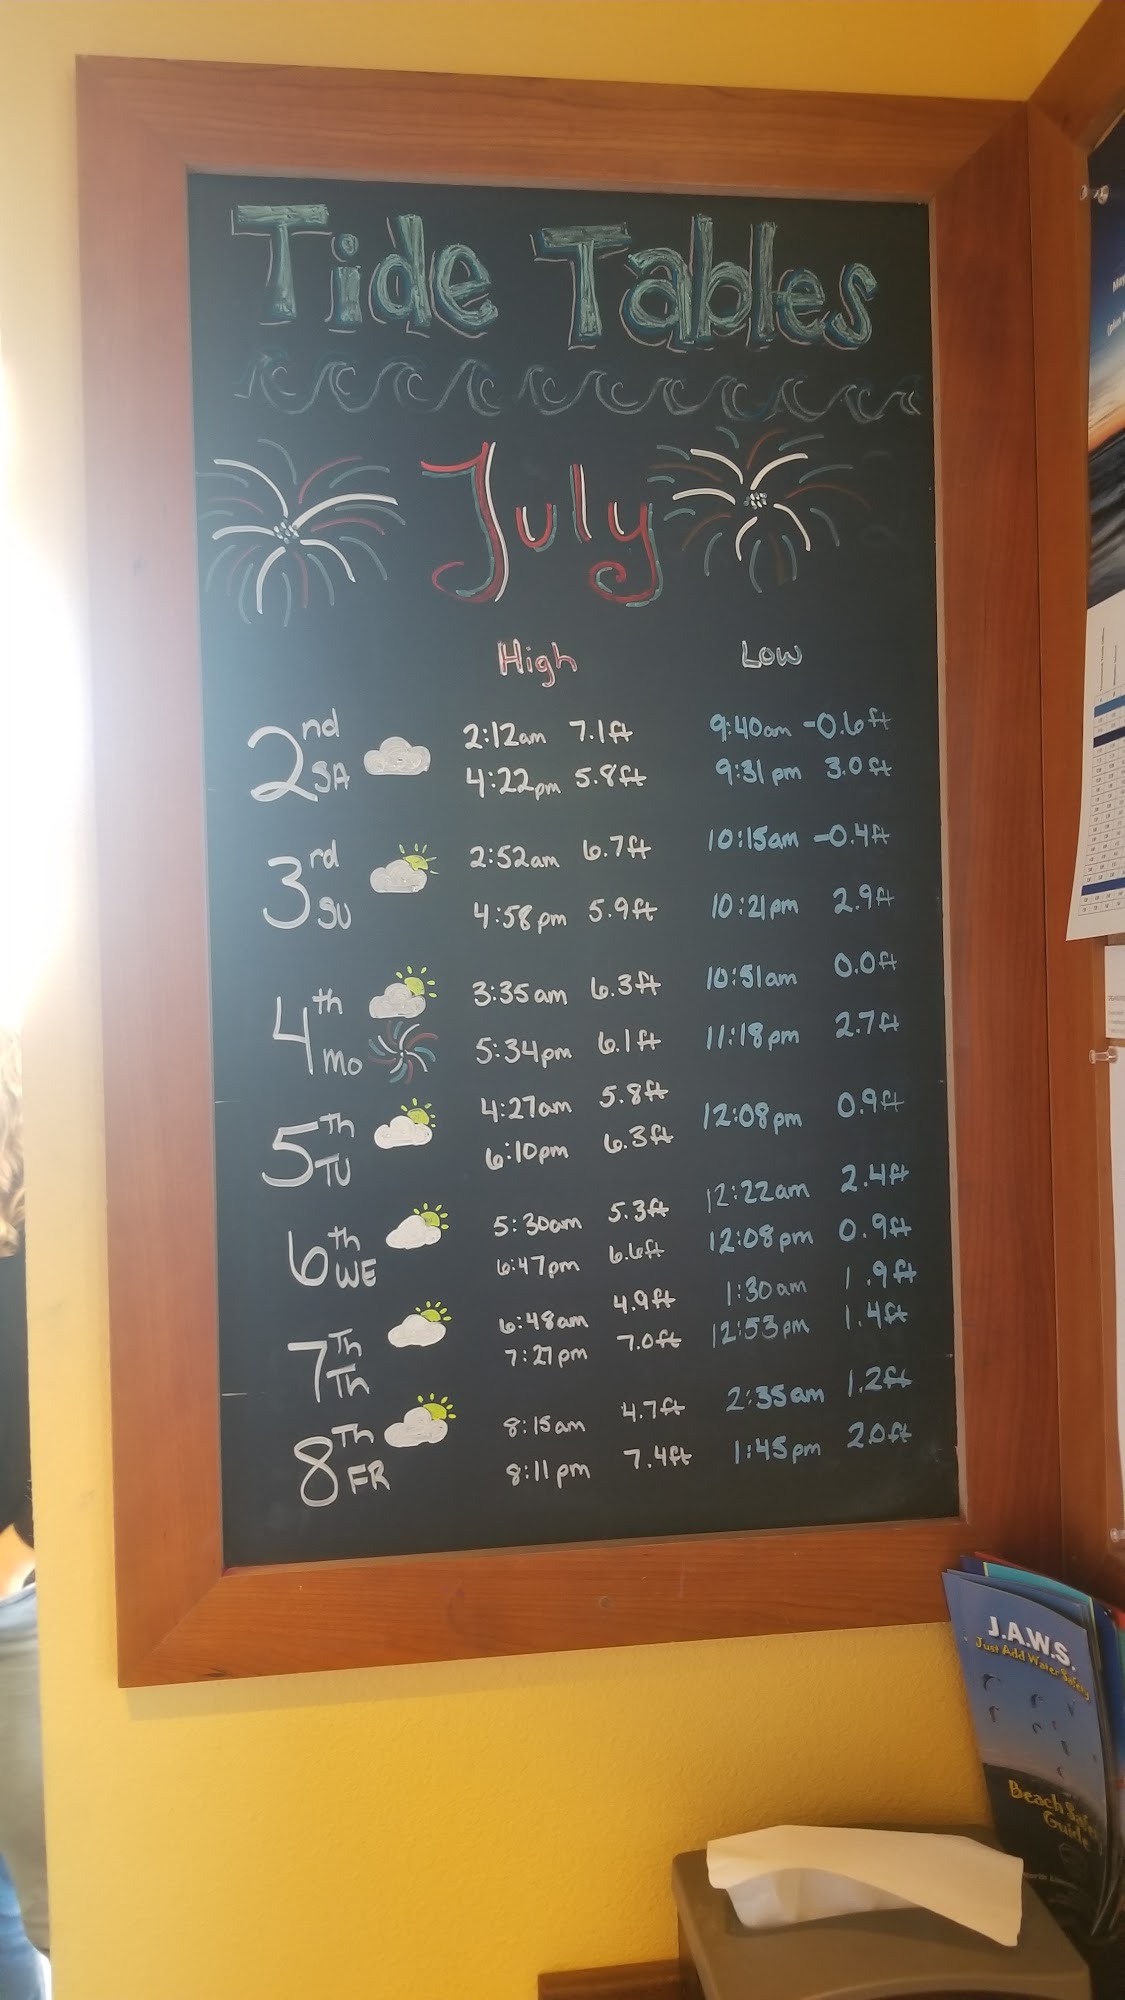 Tide Tables
July
High Low
2nd SA 2:12am 7.1ft 9:40am -0.6ft
4:22pm 5.8ft 9:31pm 3.0ft
3rd SU 2:52am 6.7ft 10:15am -0.4ft
4:58pm 5.9ft 10:21pm 2.9ft
4th MO 3:35am 6.3ft 10:51am 0.0ft
5:34pm 6.1ft 11:18pm 2.7ft
5Th TU 4:27am 5.8ft 12:08pm 0.9ft
6:10pm 6.3ft
6th WE 5:30am 5.3ft 12:22am 2.4ft
6:47pm 6.6ft 12:08pm 0.9ft
7Th Th 6:48am 4.9ft 1:30am 1.9ft
7:27pm 7.0ft 12:53pm 1.4ft
8Th FR 8:15am 4.7ft 2:35am 1.2ft
8:11pm 7.4ft 1:45pm 2.0ft
J.A.W.S.
Just Add Water Safety
Beach
Guide